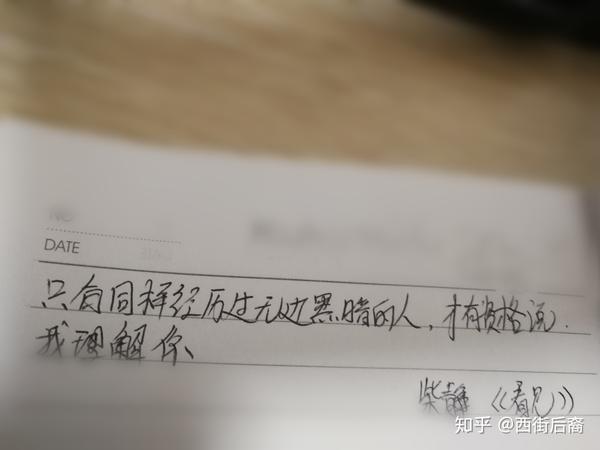 NO
DATE
只有同样经历过无边黑暗的人，才有资格说.
我理解你
柴静《看见》
知乎 @西街后裔